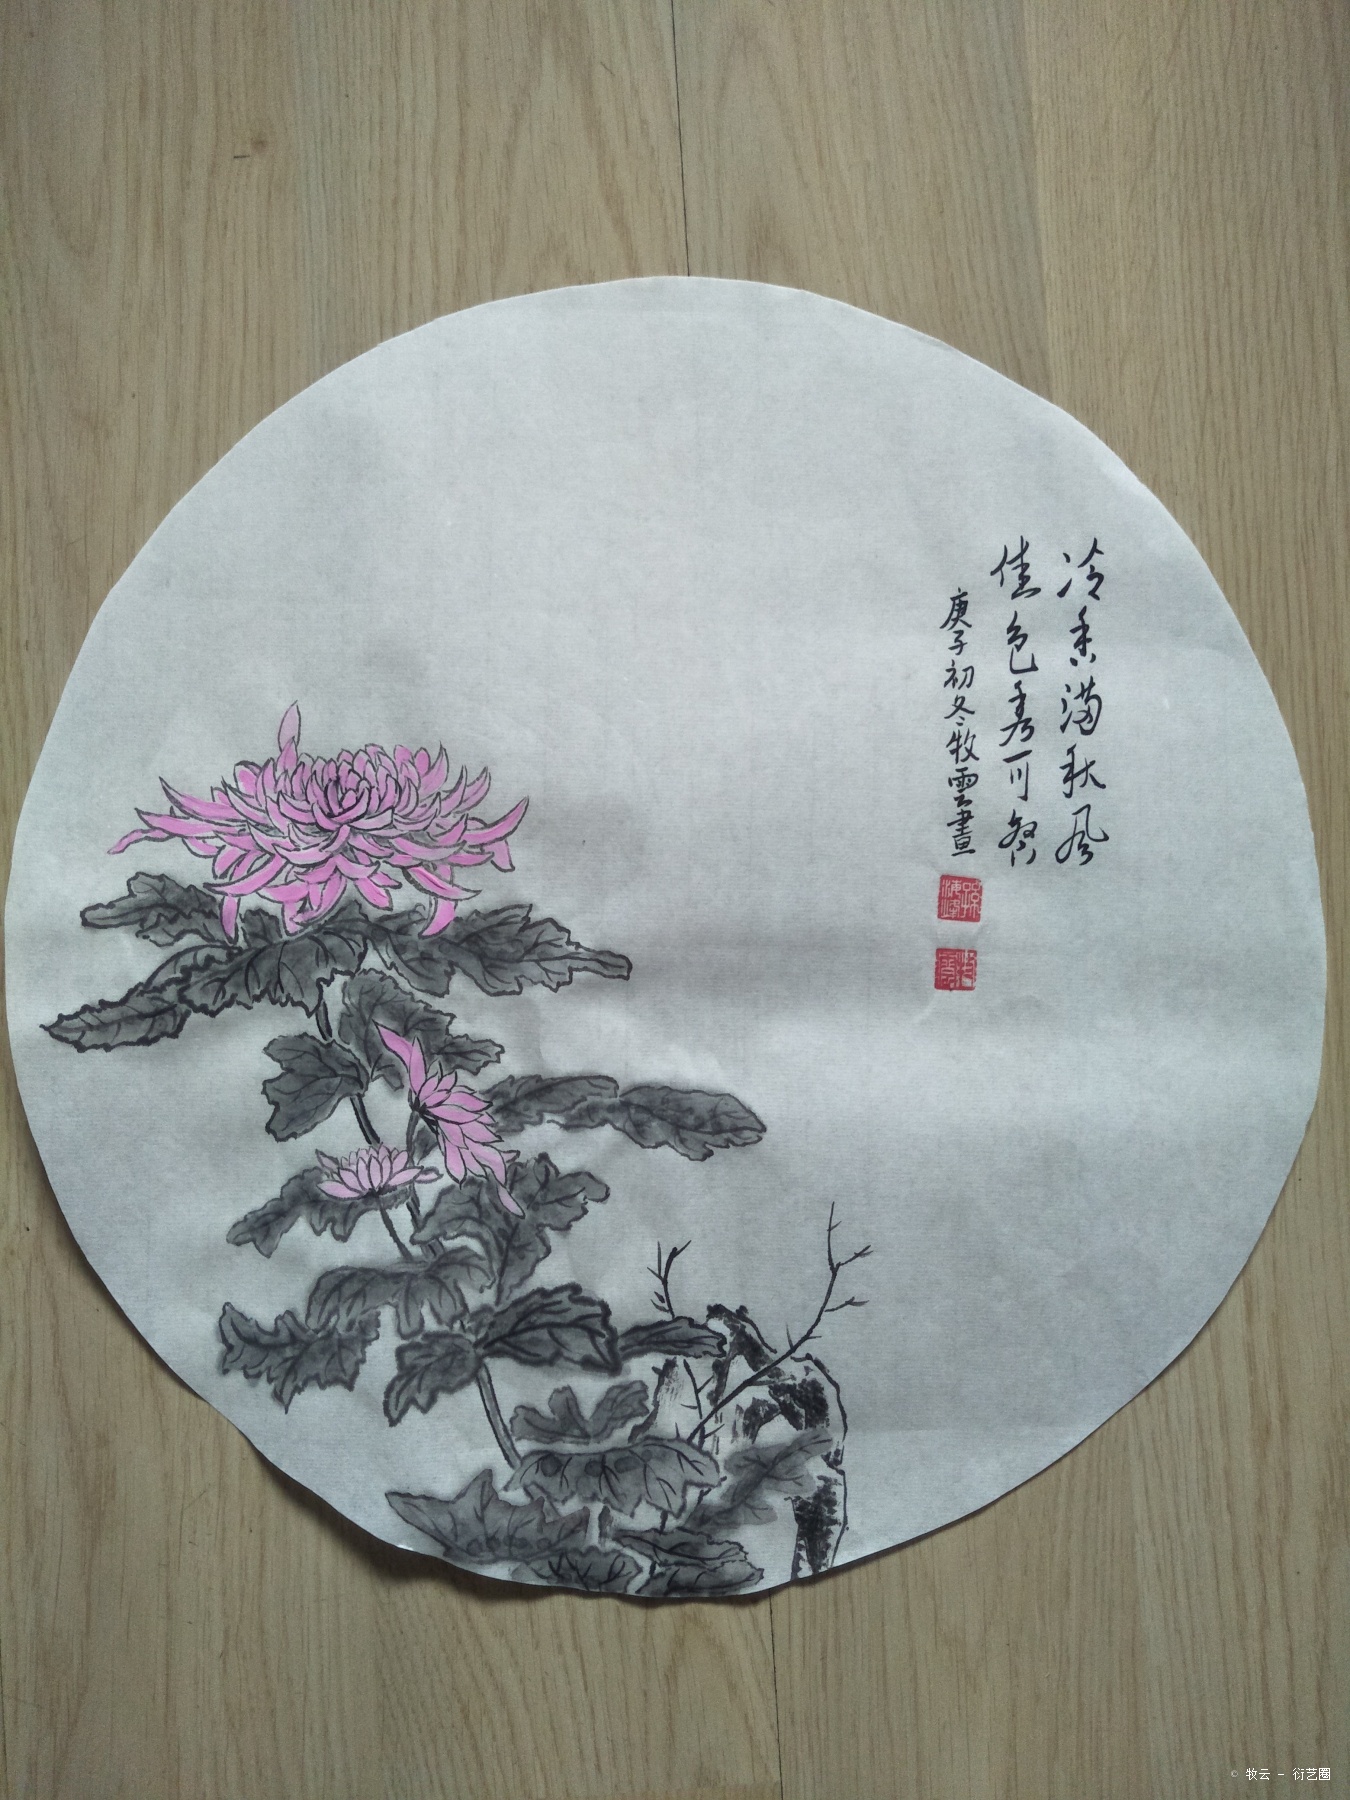 冷香满秋风
佳色秀可餐
庚子初冬牧雲畫
© 牧云 - 衍艺圈